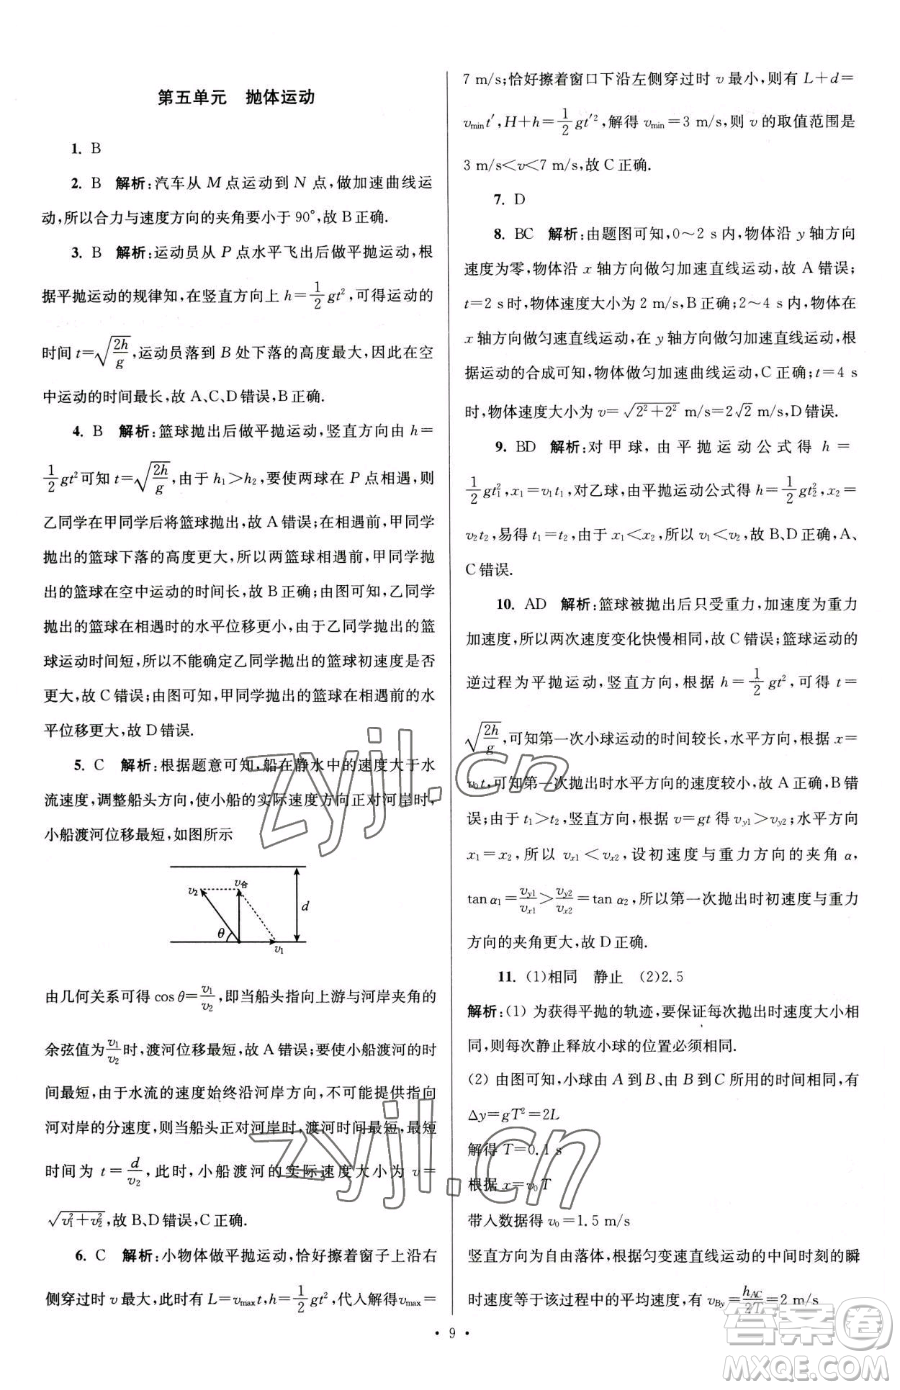 第五单元　抛体运动
1. B
2. B　解析:汽车从 M 点运动到 N 点,做加速曲线运
动,所以合力与速度方向的夹角要小于 90°,故 B 正确.
3. B　解析:运动员从 P 点水平飞出后做平抛运动,根
据平抛运动的规律知,在竖直方向上 h=\frac{1}{2}gt²,可得运动的
时间 t=\sqrt{\frac{2h}{g}},运动员落到 B 处下落的高度最大,则在空
中运动的时间最长,故 A、C、D 错误,B 正确.
4. B　解析:篮球抛出后做平抛运动,竖直方向有 h=
\frac{1}{2}gt²可知 t=\sqrt{\frac{2h}{g}},由于 h₁>h₂,要使两球在 P 点相遇,则
乙同学在甲同学后将篮球抛出,故 A 错误;在相遇前,甲同学
抛出的篮球下落的高度更大,所以两篮球相遇前,甲同学抛
出的篮球在空中运动的时间长,故 B 正确;由图可知,乙同学
抛出的篮球在相遇时的水平位移更小,由于乙同学抛出的篮
球运动时间短,所以不能确定乙同学抛出的篮球初速度是否
更大,故 C 错误;由图可知,甲同学抛出的篮球在相遇前的水
平位移更大,故 D 错误.
5. C　解析:根据题意可知,船在静水中的速度大于水
流速度,调整船头方向,使小船的实际速度方向正对河岸时,
小船渡河位移最短,如图所示
v₂　v合　d　θ　v₁
由几何关系可得 cos θ=\frac{v₁}{v₂},即当船头指向上游与河岸夹角的
余弦值为\frac{v₁}{v₂}时,渡河位移最短,故 A 错误;当小船渡河时间最
短时,由于水流的速度始终沿河岸方向,不影响小船到达
河对岸的分速度,则当船头正对河岸时,渡河时间最短,最短
时间为 t=\frac{d}{v₂},此时,小船渡河的实际速度大小为 v=
\sqrt{v₁²+v₂²},故 B、D 错误,C 正确.
6. C　解析:小物体做平抛运动,恰好擦着窗子上沿右
侧穿过时 v 最大,此时有 L=v_{max}t,h=\frac{1}{2}gt²,代入解得 v_{max}=
7 m/s;恰好擦着窗口下沿左侧穿过时 v 最小,则有 L+d=
v_{min}t′,H+h=\frac{1}{2}gt′²,解得 v_{min}=3 m/s,则 v 的取值范围是
3 m/s<v<7 m/s,故 C 正确.
7. D
8. BC　解析:由题图可知,0~2 s 内,物体沿 y 轴方向
速度为零,物体沿 x 轴方向做匀加速直线运动,故 A 错误;
t=2 s时,物体速度大小为 2 m/s,B 正确;2~4 s 内,物体在
x 轴方向做匀速直线运动,在 y 轴方向做匀加速直线运动,
根据运动的合成可知,物体做匀加速曲线运动,C 正确;t=4 s
时,物体速度大小为 v=\sqrt{2²+2²} m/s=2\sqrt{2} m/s,D 错误.
9. BD　解析:对甲球,由平抛运动公式得 h=
\frac{1}{2}gt₁²,x₁=v₁t₁,对乙球,由平抛运动公式得 h=\frac{1}{2}gt₂²,x₂=
v₂t₂,易得 t₁=t₂,由于 x₁<x₂,所以 v₁<v₂,故 B、D 正确,A、
C 错误.
10. AD　解析:篮球被抛出后只受重力,加速度为重力
加速度,所以两次速度变化快慢相同,故 C 错误;篮球运动的
逆过程为平抛运动,竖直方向,根据 h=\frac{1}{2}gt²,可得 t=
\sqrt{\frac{2h}{g}},可知第一次小球运动的时间较长,水平方向,根据 x=
v₀t,可知第一次抛出时水平方向的速度较小,故 A 正确,B 错
误;由于 t₁>t₂,竖直方向,根据 v=gt 得 v_{y1}>v_{y2};水平方向
x₁=x₂,所以 v_{x1}<v_{x2},设初速度与重力方向的夹角 α,
tan α₁=\frac{v_{y1}}{v_{x1}}>\frac{v_{y2}}{v_{x2}}=tan α₂,所以第一次抛出时速度与重力
方向的夹角更大,故 D 正确.
11. (1)相同　静止　(2)2.5
解析:(1) 为获得平抛的轨迹,要保证每次抛出时速度大小相
同,则每次静止释放小球的位置必须相同.
(2) 由图可知,小球由 A 到 B、由 B 到 C 所用的时间相同,有
Δy=gT²=2L
解得 T=0.1 s
根据 x=v₀T
带入数据得 v₀=1.5 m/s
竖直方向为自由落体,根据匀变速直线运动的中间时刻的瞬
时速度等于该过程中的平均速度,有 v_{By}=\frac{h_{AC}}{2T}=2 m/s
· 9 ·
zyjl.cn
zyjl.cn
答案圈
MXQE.COM